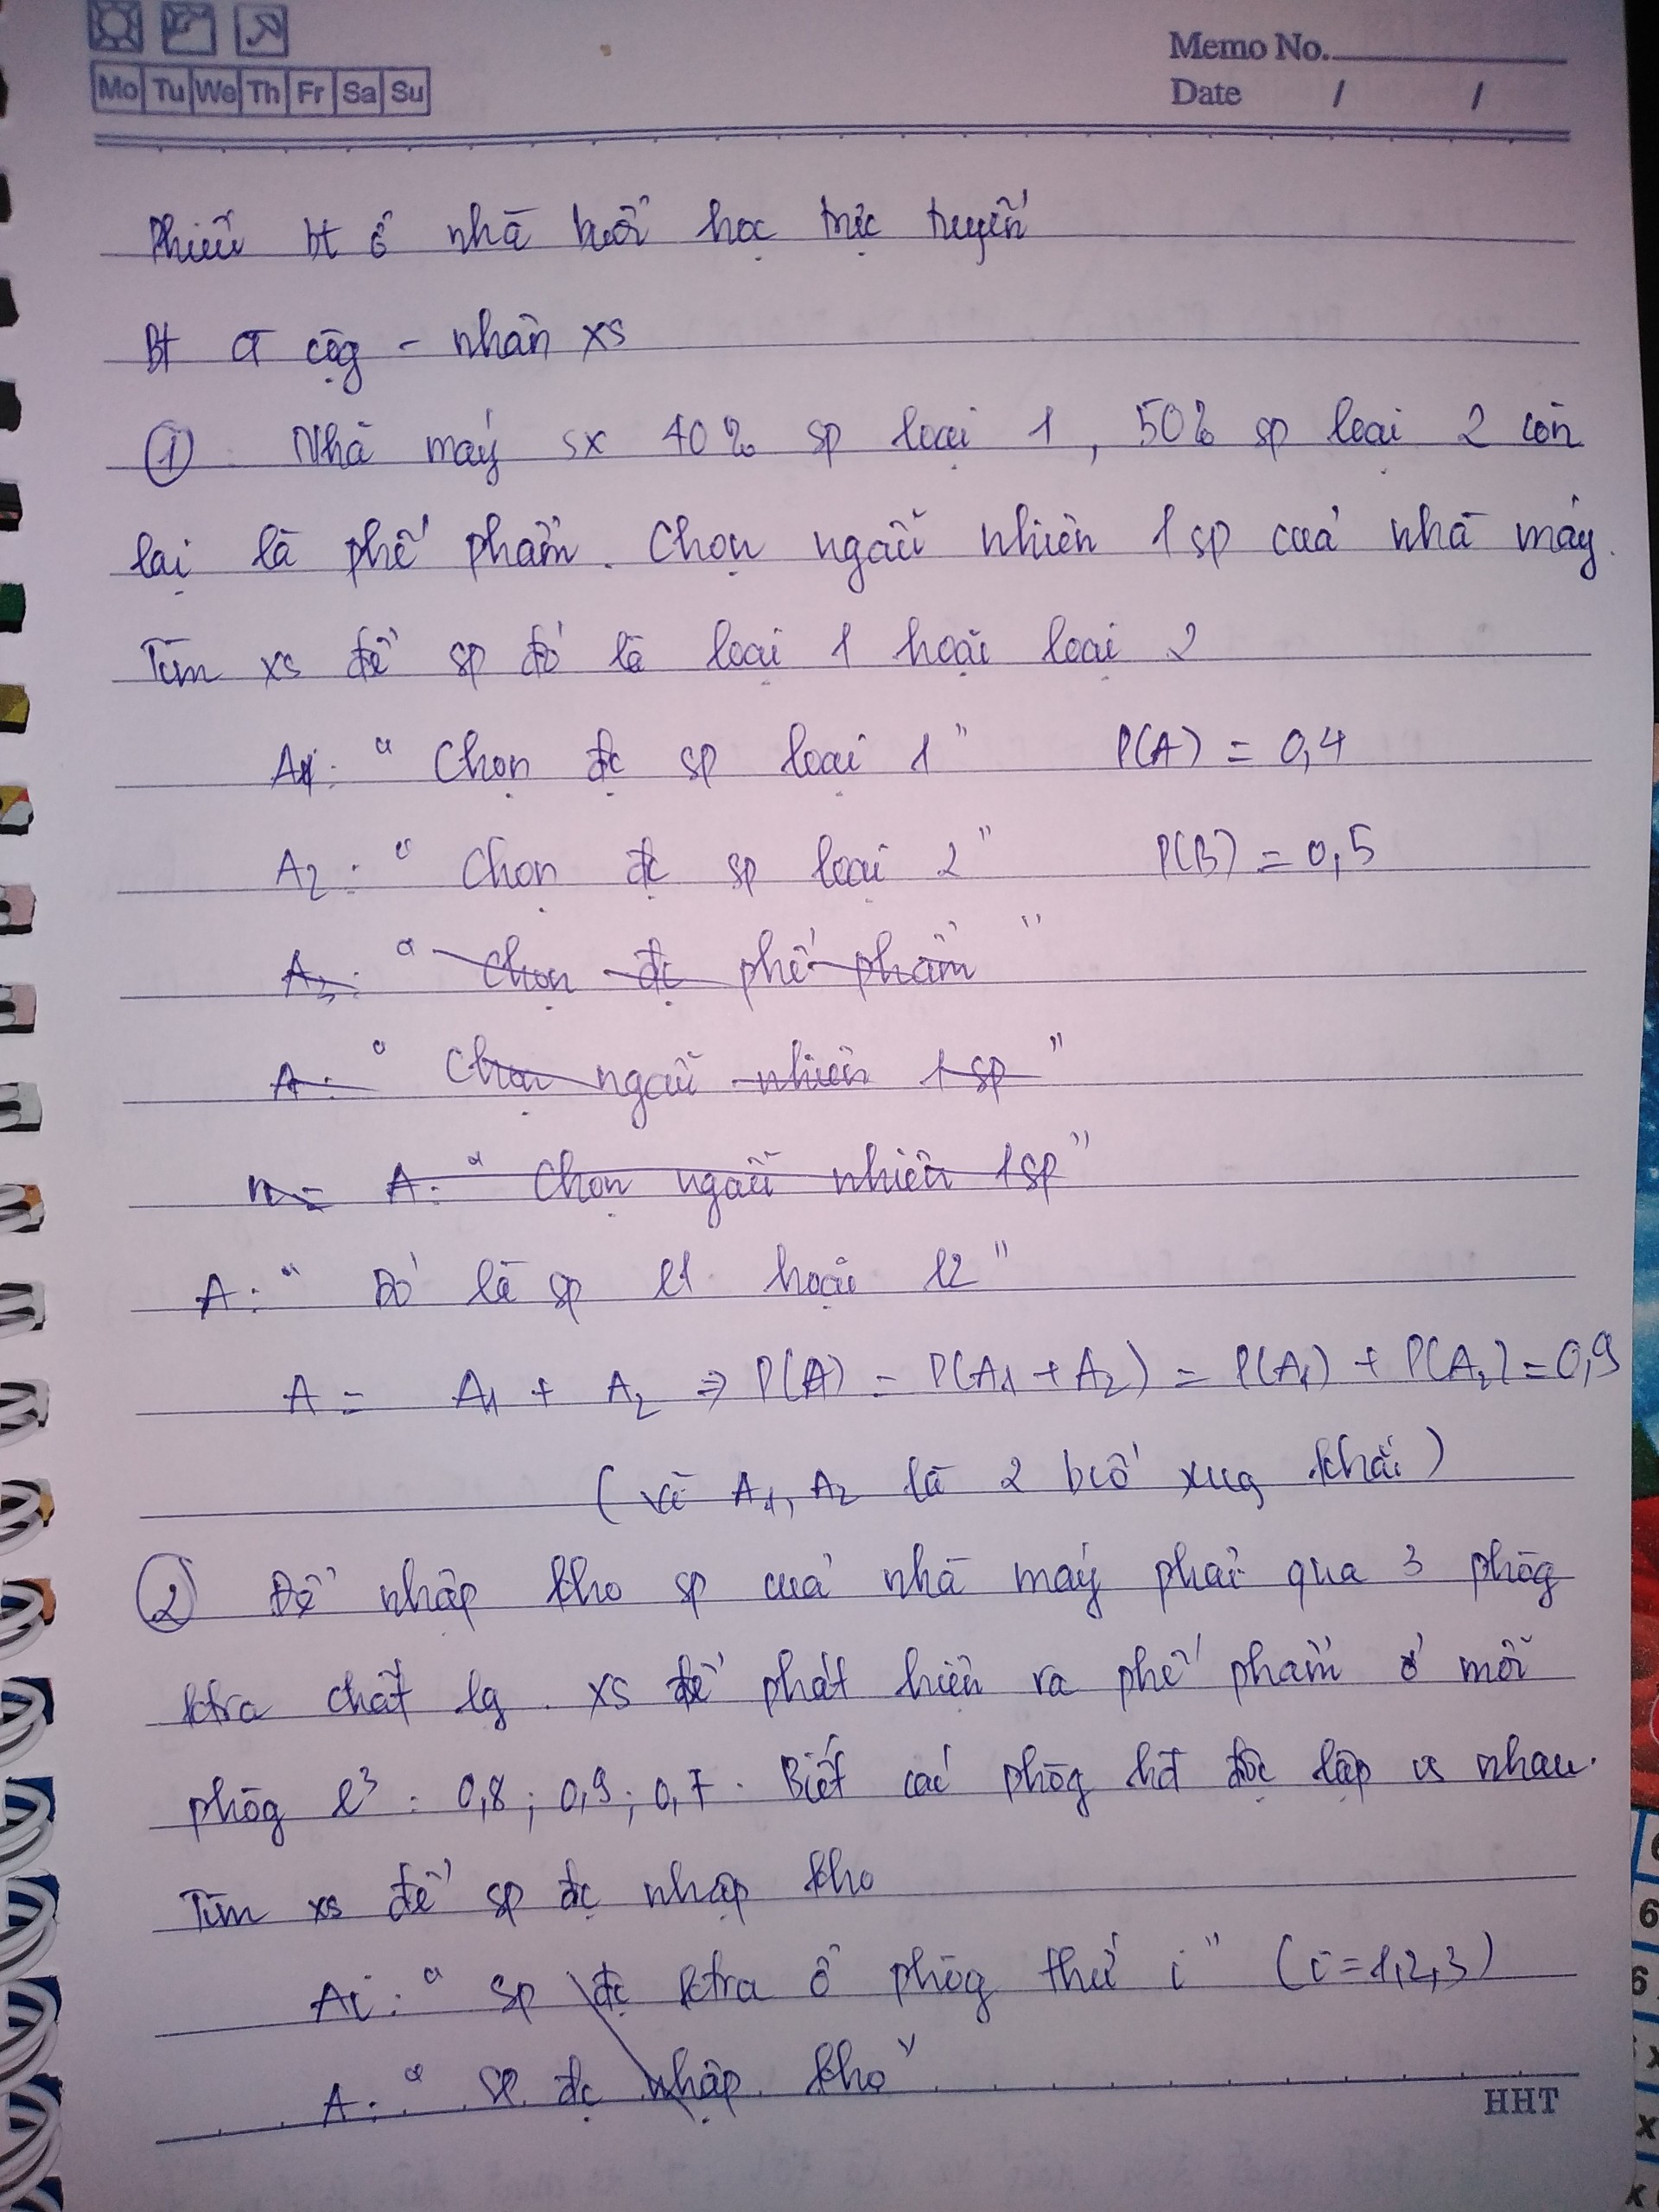 Memo No.
Mo Tu We Th Fr Sa Su
Date / /
Phiếu bt ở nhà buổi học trực tuyến
Bt CT cộg - nhân xs
① Nhà máy sx 40% sp loại 1, 50% sp loại 2 còn
lại là phế phẩm. Chọn ngẫu nhiên 1 sp của nhà máy.
Tìm xs để sp đó là loại 1 hoặc loại 2
A1: " Chọn đc sp loại 1 " P(A) = 0,4
A2: " Chọn đc sp loại 2 " P(B) = 0,5
A3: " Chọn đc phế phẩm "
A: " Chọn ngẫu nhiên 1 sp "
n= A: " Chọn ngẫu nhiên 1 sp "
A: " Đó là sp l1 hoặc l2 "
A = A1 + A2 => P(A) = P(A1 + A2) = P(A1) + P(A2) = 0,9
(vì A1, A2 là 2 b/cố xug khắc)
② Để nhập kho sp của nhà máy phải qua 3 phòg
ktra chất lg. xs để phát hiện ra phế phẩm ở mỗi
phòg l³ : 0,8 ; 0,9 ; 0,7. Biết các phòg hđ độc lập vs nhau.
Tìm xs để sp đc nhập kho
Ai: " sp đc ktra ở phòg thứ i " (i=1,2,3)
A: " sp đc nhập kho "
HHT